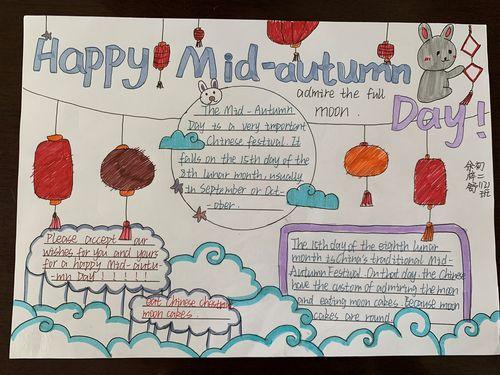 Happy Mid-autumn
Day!
admire the full
moon.
The Mid-Autumn
Day is a very important
Chinese festival. It
falls on the 15th day of the
8th lunar month, usually
in September or Oct-
ober.
Please accept our
wishes for you and yours
for a happy Mid-autu-
-mn Day!!!!
eat Chinese
moon cakes.
The 15th day of the eighth lunar
month is China's traditional Mid-
Autumn Festival. On that day, the Chinese
have the custom of admiring the moon
and eating moon cakes. Because moon
cakes are round.
二
班